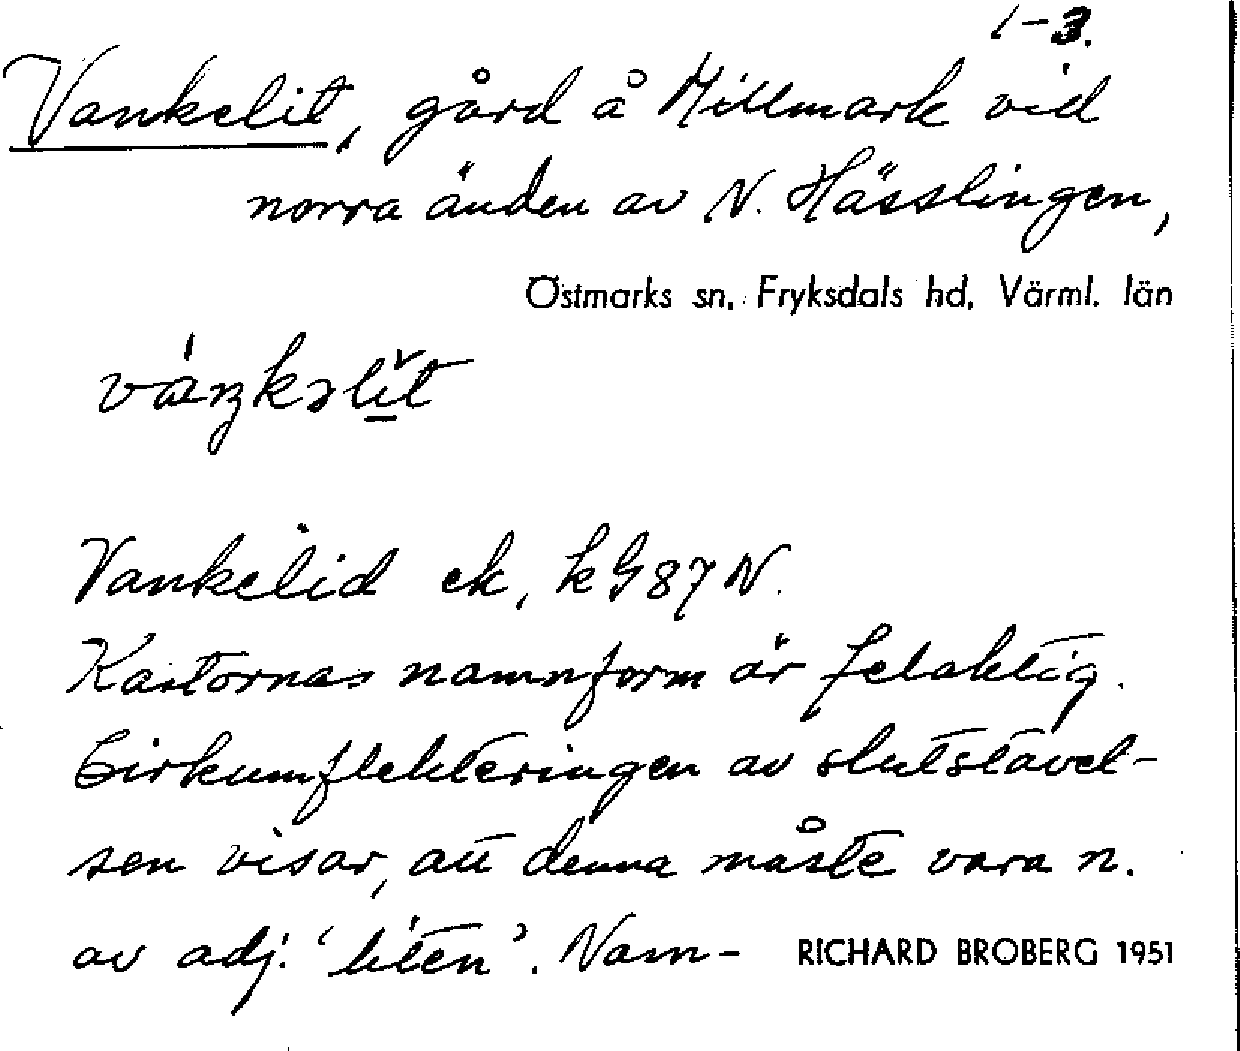 1-3.
Vankelit, gård å Millmark vid
norra änden av N. Hässlingen,
Östmarks sn, Fryksdals hd, Värml. län
Vankelid ek, kG87N.
Kartornas namnform är felaktig.
Cirkumflekteringen av slutstavel-
sen visar, att denna måste vara n.
av adj. 'liten'. Nam-
RICHARD BROBERG 1951